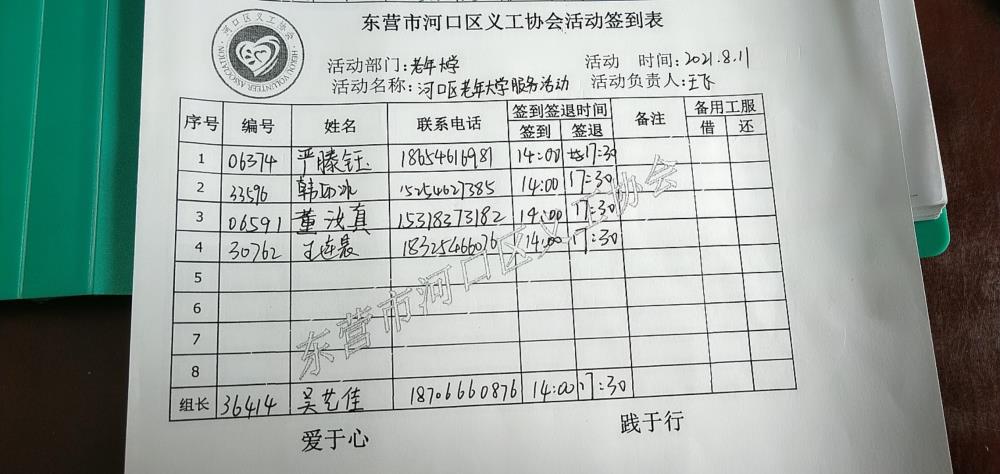 东营市河口区义工协会活动签到表
河口区义工协会
HEKOU VOLUNTEER ASSOCIATION
活动部门:老年大学 活动 时间:2021.8.11
活动名称:河口区老年大学服务活动 活动负责人:王飞
序号 编号 姓名 联系电话 签到签退时间 备注 备用工服
签到 签退 借 还
1 06374 严滕钰 18654616981 14:00 17:30
2 33596 韩 冰 15254627385 14:00 17:30
3 06591 董汝真 15318373182 14:00 17:30
4 30762 王连晨 18325466076 14:00 17:30
5
6
7
8
组长 36414 吴艺佳 18706660876 14:00 17:30
东营市河口区义工协会
爱于心 践于行